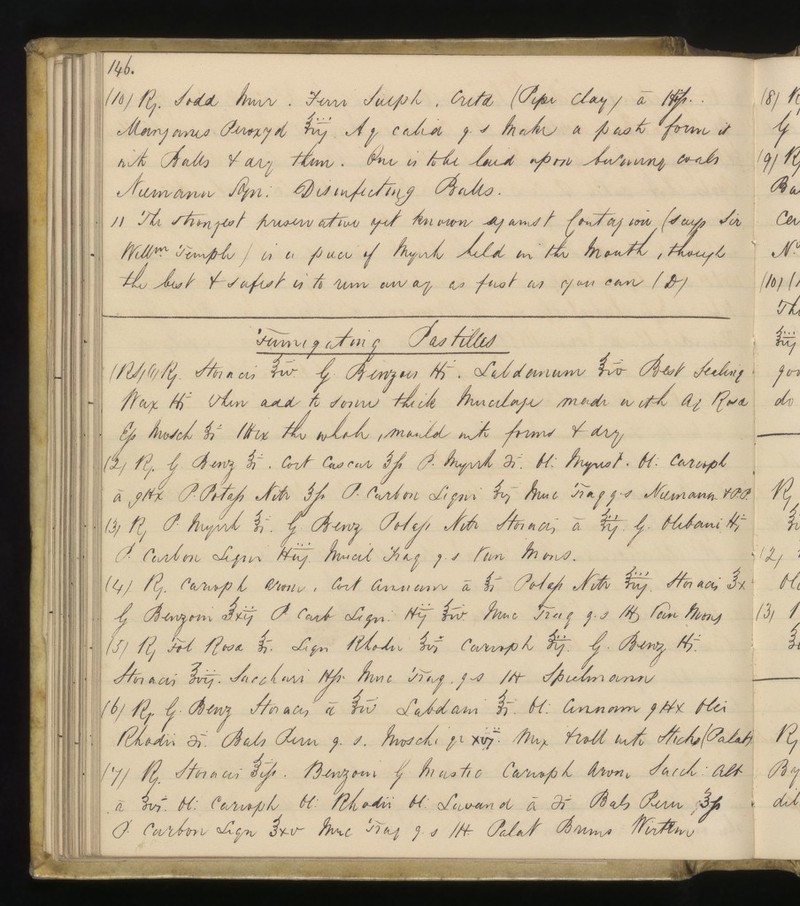 146.
(10) R. Sodæ Mur. Ferri Sulph. Creta (Pipe Clay) ā ℔
Manganes Peroxyd ℥iij Aq calid q.s Make a paste form it
into Balls & dry them. One is to be laid upon burning coals
Niemann Syn: Disinfecting Balls.
11 The strongest preservative yet known against Contagion (says Sir
Willm Temple) is a piece of Myrrh held in the Mouth, though
the best & safest is to run away as fast as you can (D)
Fumigating Pastilles
(1) R. Storacis ℥iv G Benzoin ℔i. Labdanum ℥iv Best Sealing
Wax ℔i then add to some thick Mucilage made with Aq Rosa
Ess Mosch ℥i Mix the whole, mould into forms & dry
(2) R. G Benz ℥i. Cort Cascar ℥ß P. Myrrh ʒi. Ol: Myrist. Ol: Caroph
ā gttx P Potass Nitr ℥ß P. Carbon Ligni ℥vj Muc Trag q.s Niemann & P.P.
(3) R P. Myrrh ℥i. G Benz Potass Nitr Storacis ā ℥iij G. Olibani ℔i
P. Carbon Ligni ℔iij Mucil Trag q.s Van Mons.
(4) R. Caroph arom. Cort Cinnam ā ℥i Potass Nitr ℥iij Storacis ℥x
G Benzoin ℥xij P Carb Lign ℔ij ℥iv Muc Trag q.s M Van Mons
(5) R Fol Rosa ℥i. Lign Rhodii ℥vi Caroph ℥iij G. Benz ℔i
Storacis ℥vij. Sacchari ℔ß. Muc Trag. q.s M Spielmann
(6) R G. Benz Storacis ā ℥iv Labdani ℥i. Ol: Cinnam gttx Olei
Rhodii ʒi. Bals Peru q.s. Moschi gr xvj. Mix & roll into Sticks (Palat)
(7) R. Storacis ℥iß. Benzoin G Mastic Caroph Arom Sacch: alb
ā ℥vi. Ol: Caroph Ol Rhodii Ol: Lavand ā ʒi Bals Peru ℥ß
P. Carbon Lign ℥xv Muc Trag q.s M. Palat
(8)
(9)
(10)
(2)
(3)